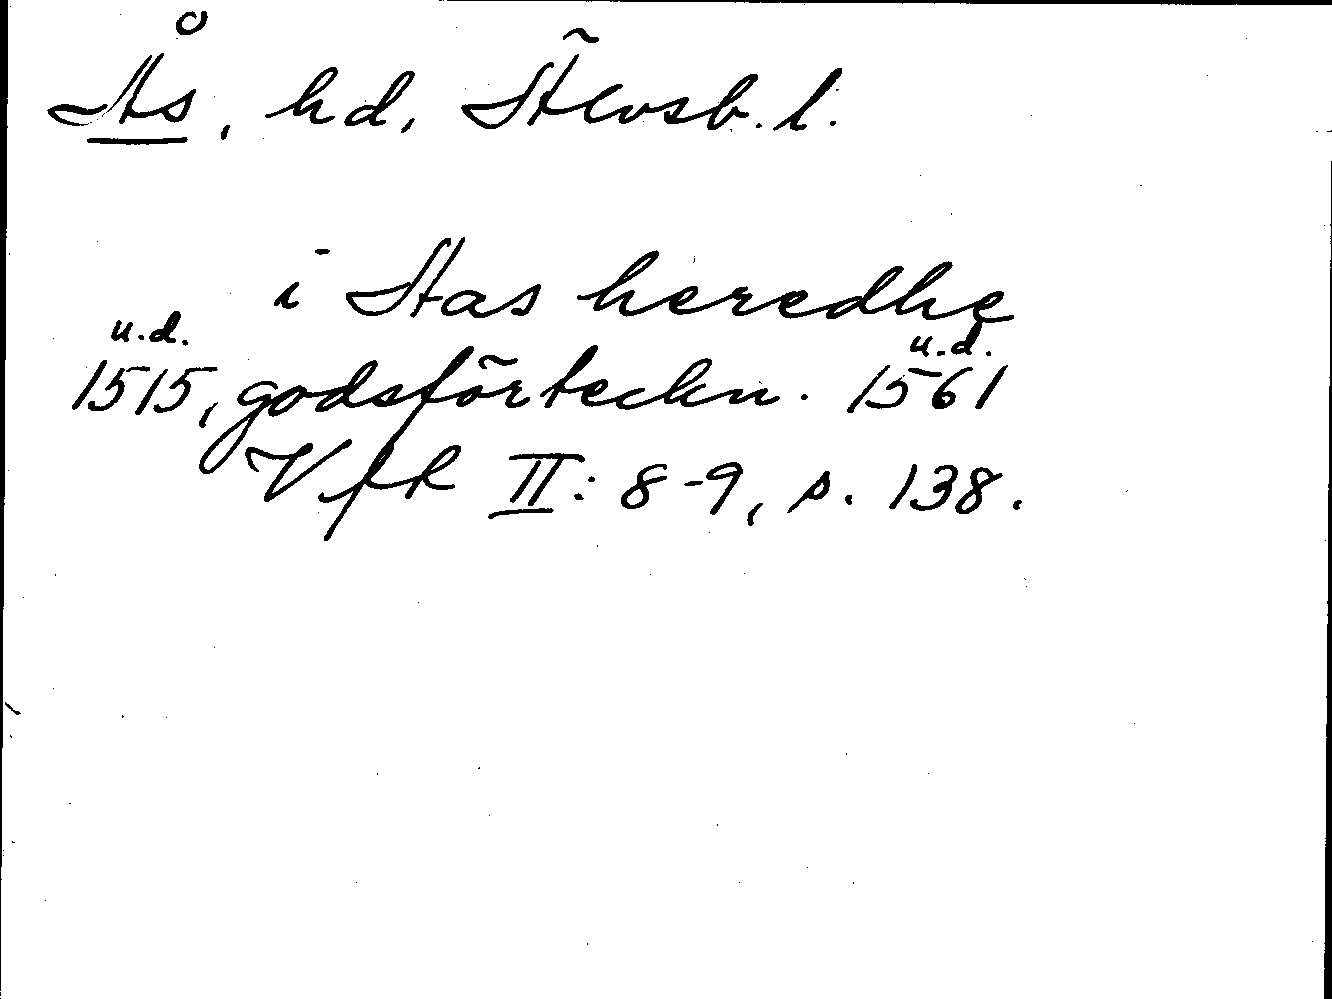 Ås, hd, Älvsb. l.
i Aas heredhe
u.d. u.d.
1515, godsförteckn. 1561
VfR II: 8-9, s. 138.